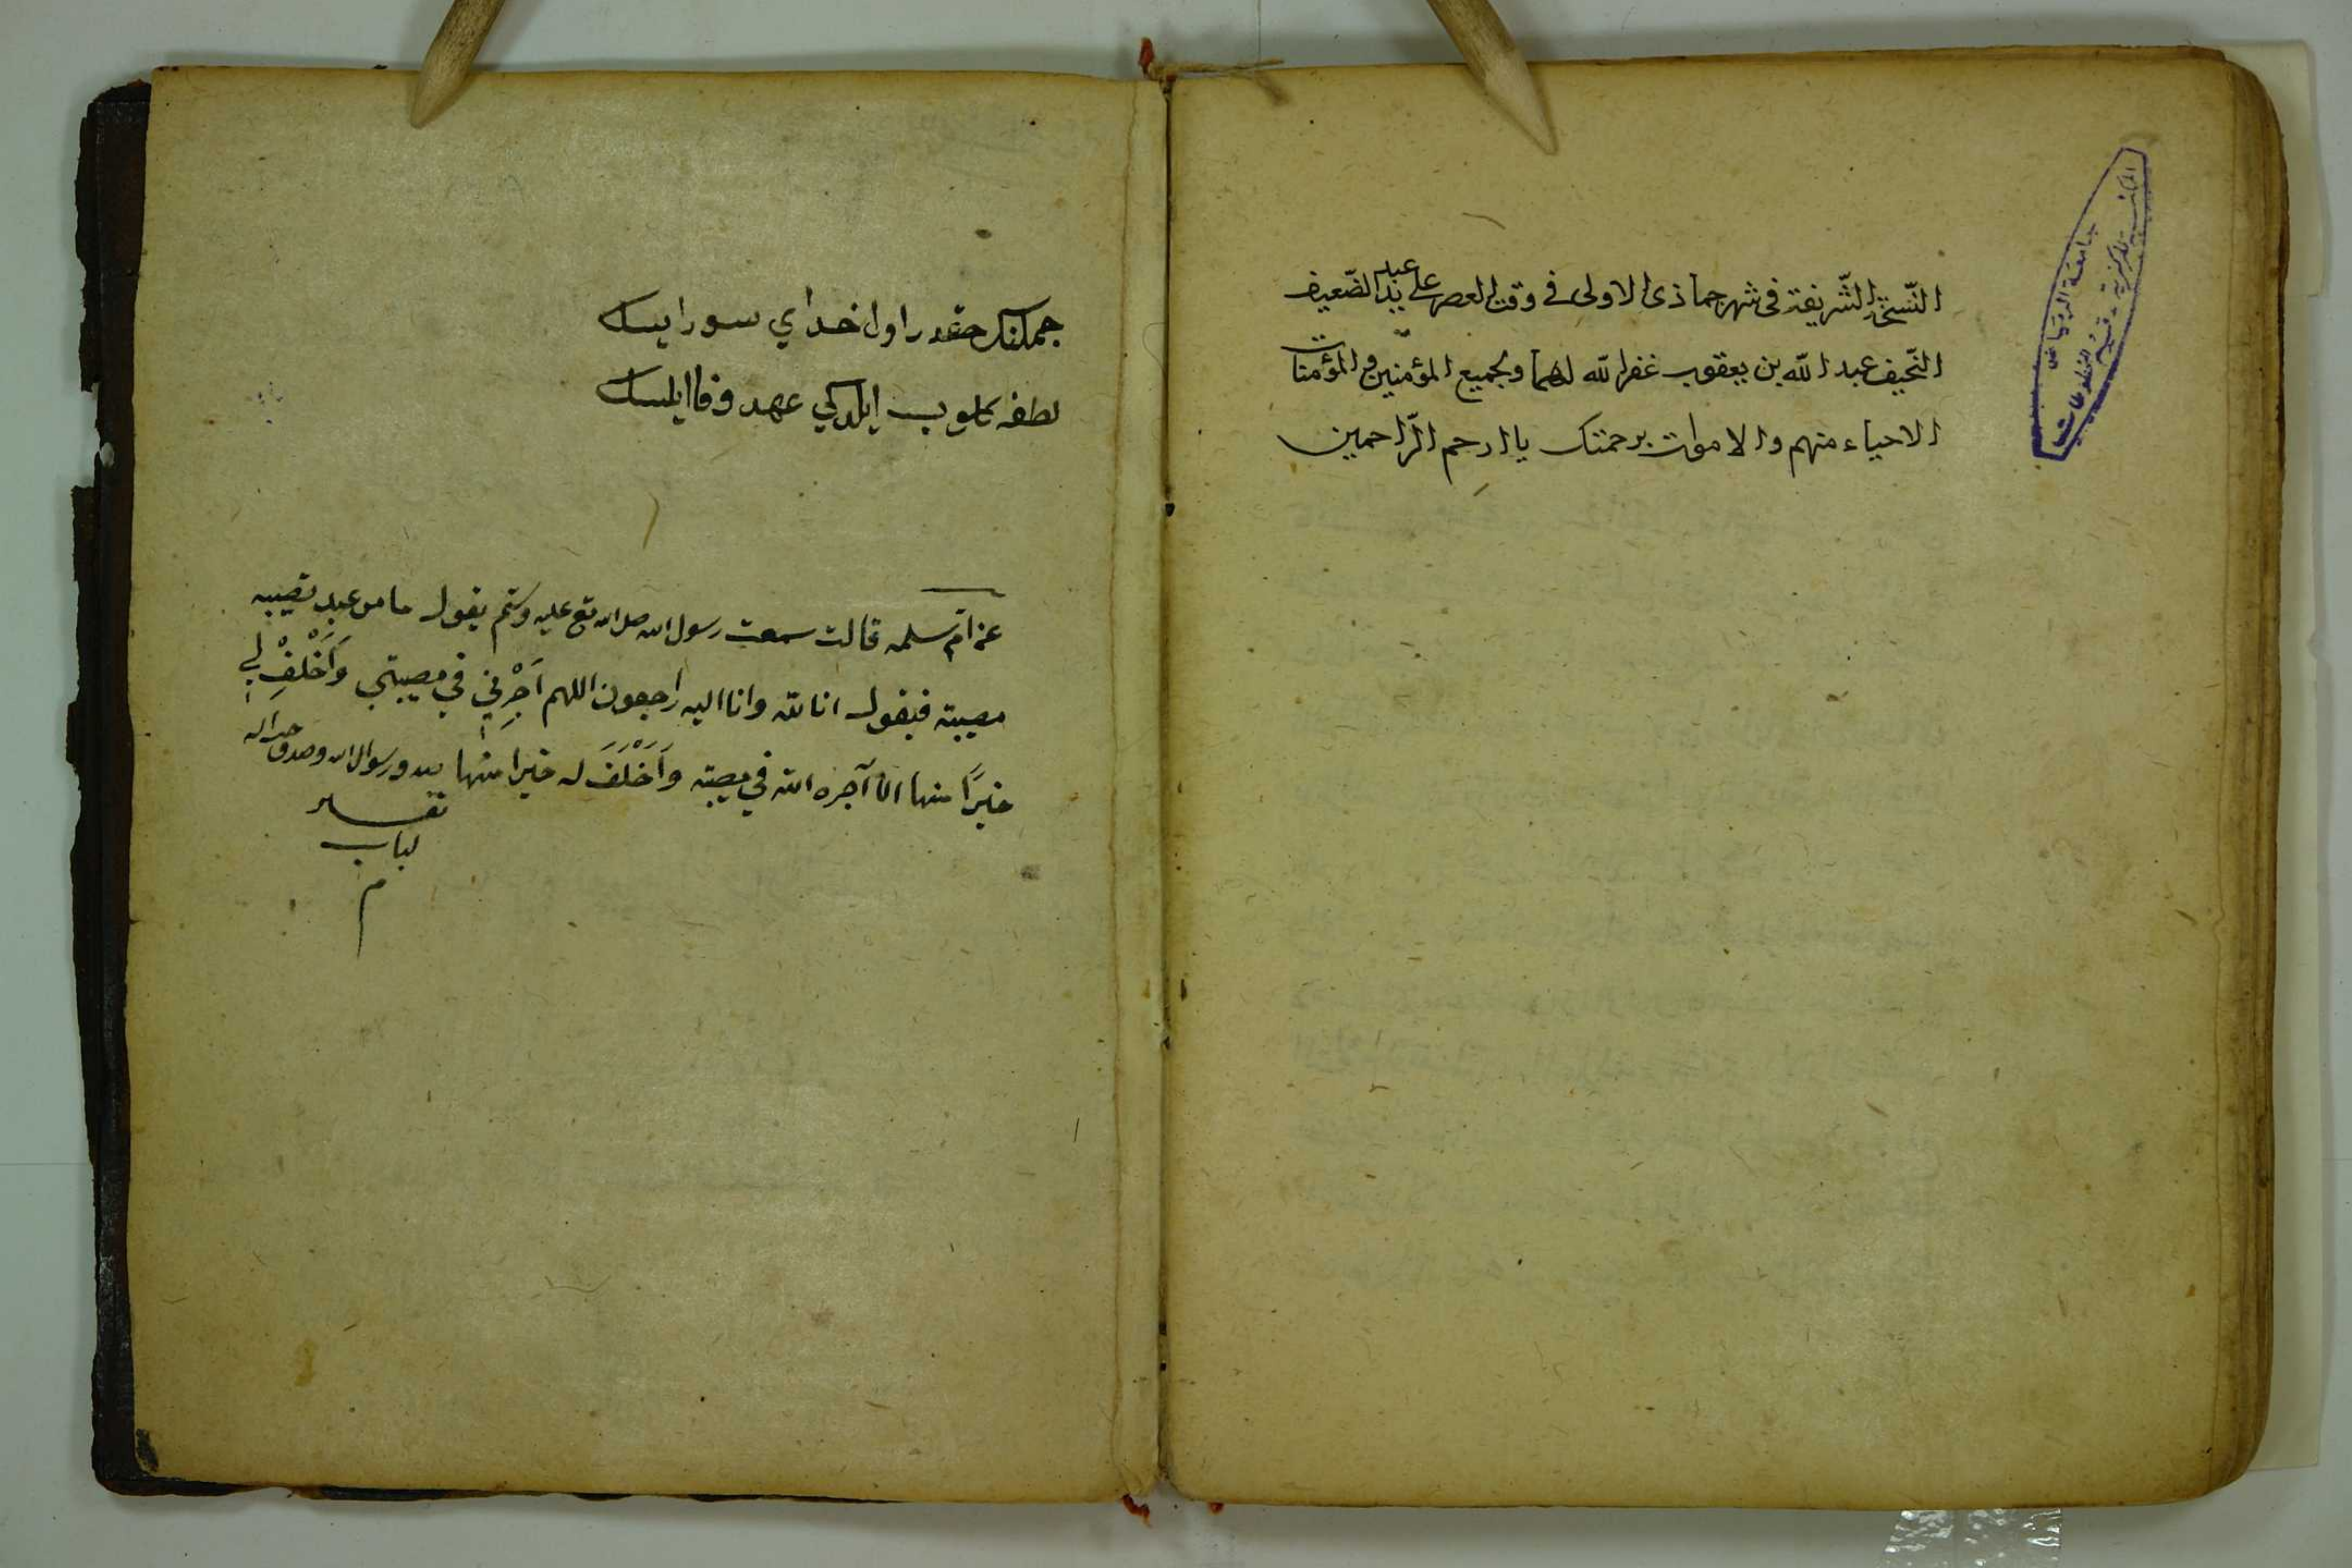 النّسخة الشّريفة فى شهر جماذى الاولى فى وقت العصر على يد عبد الضّعيف
النّحيف عبد اللّه بن يعقوب غفر اللّه لهما ولجميع المؤمنين والمؤمنات
الاحياء منهم والاموات برحمتك يا ارحم الرّاحمين
جامعة الرياض
المكتبة المركزية - قسم المخطوطات
اول خداي سورايسك
لطفه كلوب ايلدكي عهد وفا ايلسك
عن ام سلمه قالت سمعت رسول الله صلى الله تع عليه وسلم يقول ما من عبد تصيبه
مصيبة فيقول انا لله وانا اليه راجعون اللهم اَجِرْنِي في مصيبتي وَاَخْلِفْ لِي
خيرًا منها الا آجره الله في مصيبته وَاَخْلَفَ له خيرا منها ورسول الله وصدق
تفسير
لباب
م